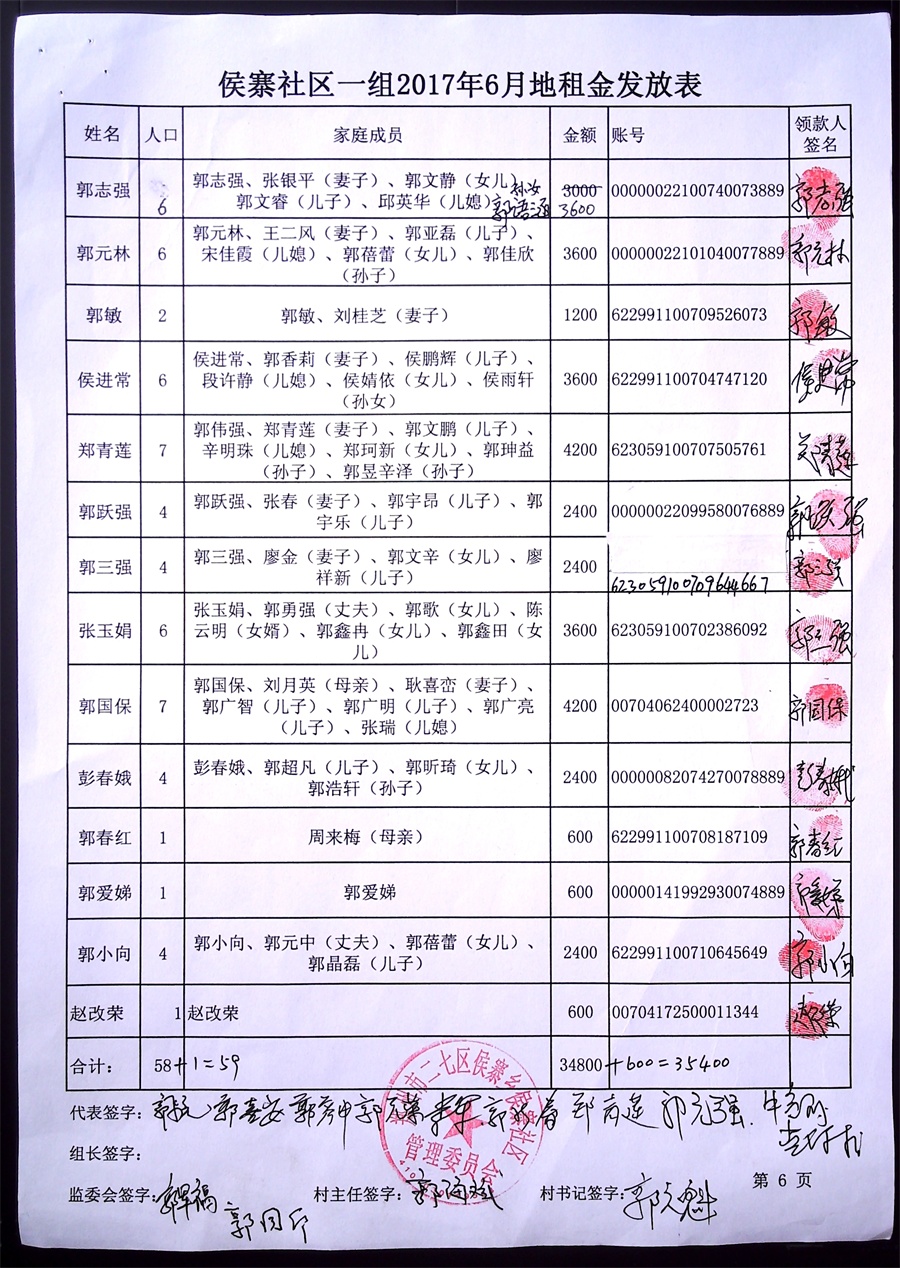 侯寨社区一组2017年6月地租金发放表
姓名 人口 家庭成员 金额 账号 领款人
签名
郭志强 6 郭志强、张银平（妻子）、郭文静（女儿）、 3000 00000022100740073889 郭志强
郭文睿（儿子）、邱英华（儿媳） 孙女 郭语涵 3600
郭元林 6 郭元林、王二风（妻子）、郭亚磊（儿子）、 3600 00000022101040077889 郭元林
宋佳霞（儿媳）、郭蓓蕾（女儿）、郭佳欣
（孙子）
郭敏 2 郭敏、刘桂芝（妻子） 1200 622991100709526073 郭敏
侯进常 6 侯进常、郭香莉（妻子）、侯鹏辉（儿子）、 3600 622991100704747120 侯进常
段许静（儿媳）、侯婧依（女儿）、侯雨轩
（孙女）
郑青莲 7 郭伟强、郑青莲（妻子）、郭文鹏（儿子）、 4200 623059100707505761
辛明珠（儿媳）、郑珂新（女儿）、郭珅益
（孙子）、郭昱辛泽（孙子）
郭跃强 4 郭跃强、张春（妻子）、郭宇昂（儿子）、郭 2400 00000022099580076889 郭跃强
宇乐（儿子）
郭三强 4 郭三强、廖金（妻子）、郭文辛（女儿）、廖 2400 623059100709644667 郭三强
祥新（儿子）
张玉娟 6 张玉娟、郭勇强（丈夫）、郭歌（女儿）、陈 3600 623059100702386092 郭三强
云明（女婿）、郭鑫冉（女儿）、郭鑫田（女
儿）
郭国保 7 郭国保、刘月英（母亲）、耿喜峦（妻子）、 4200 00704062400002723 郭国保
郭广智（儿子）、郭广明（儿子）、郭广亮
（儿子）、张瑞（儿媳）
彭春娥 4 彭春娥、郭超凡（儿子）、郭昕琦（女儿）、 2400 00000082074270078889 彭春娥
郭浩轩（孙子）
郭春红 1 周来梅（母亲） 600 622991100708187109 郭春红
郭爱娣 1 郭爱娣 600 00000141992930074889
郭小向 4 郭小向、郭元中（丈夫）、郭蓓蕾（女儿）、 2400 622991100710645649 郭小向
郭晶磊（儿子）
赵改荣 1 赵改荣 600 00704172500011344 赵改荣
合计： 58+1=59 34800+600=35400
市二七区侯寨乡侯寨社区
管理委员会
代表签字：
组长签字：
第 6 页
监委会签字： 村主任签字： 村书记签字：